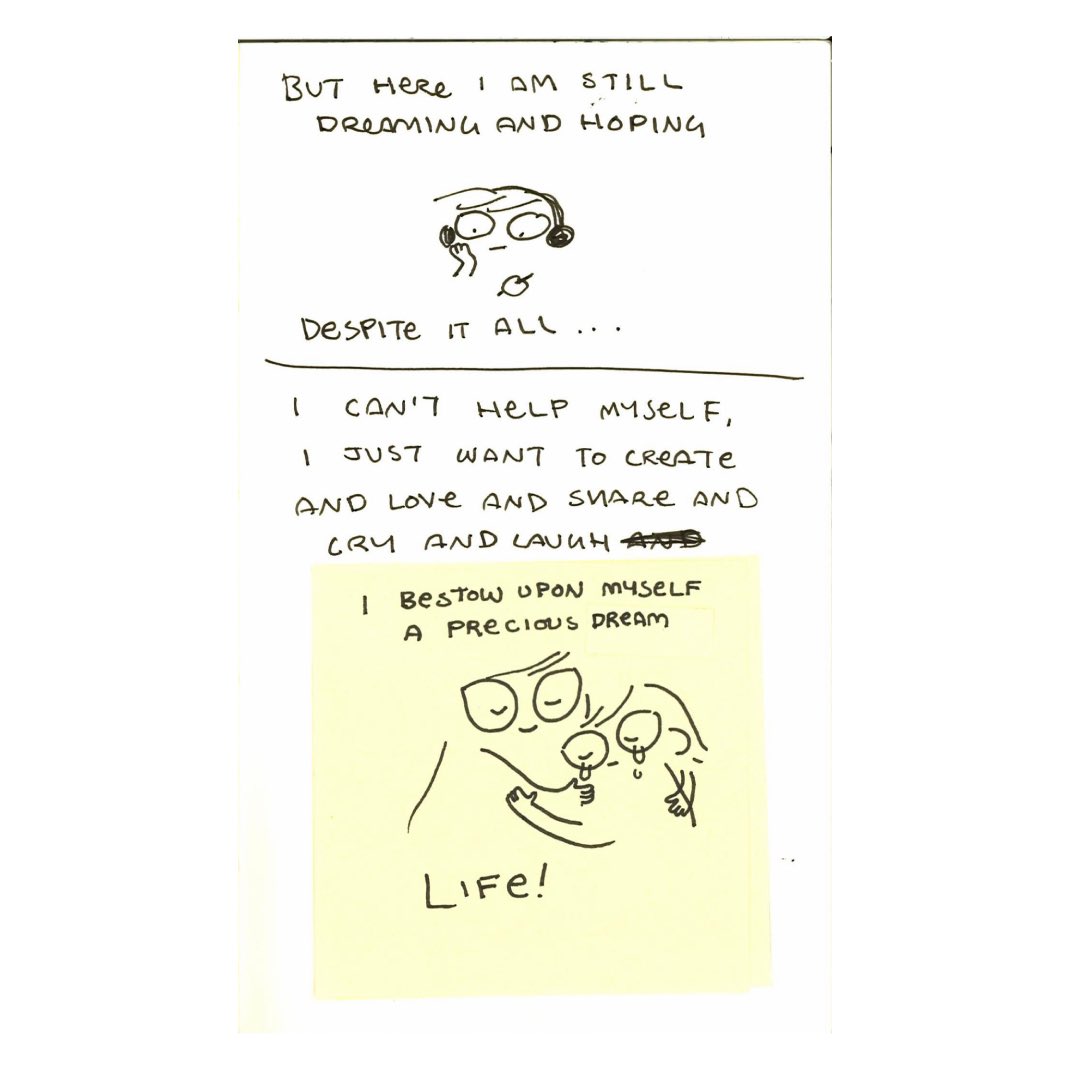 BUT HERE I AM STILL
DREAMING AND HOPING
DESPITE IT ALL...
I CAN'T HELP MYSELF,
I JUST WANT TO CREATE
AND LOVE AND SHARE AND
CRY AND LAUGH AND
I BESTOW UPON MYSELF
A PRECIOUS DREAM
LIFE!